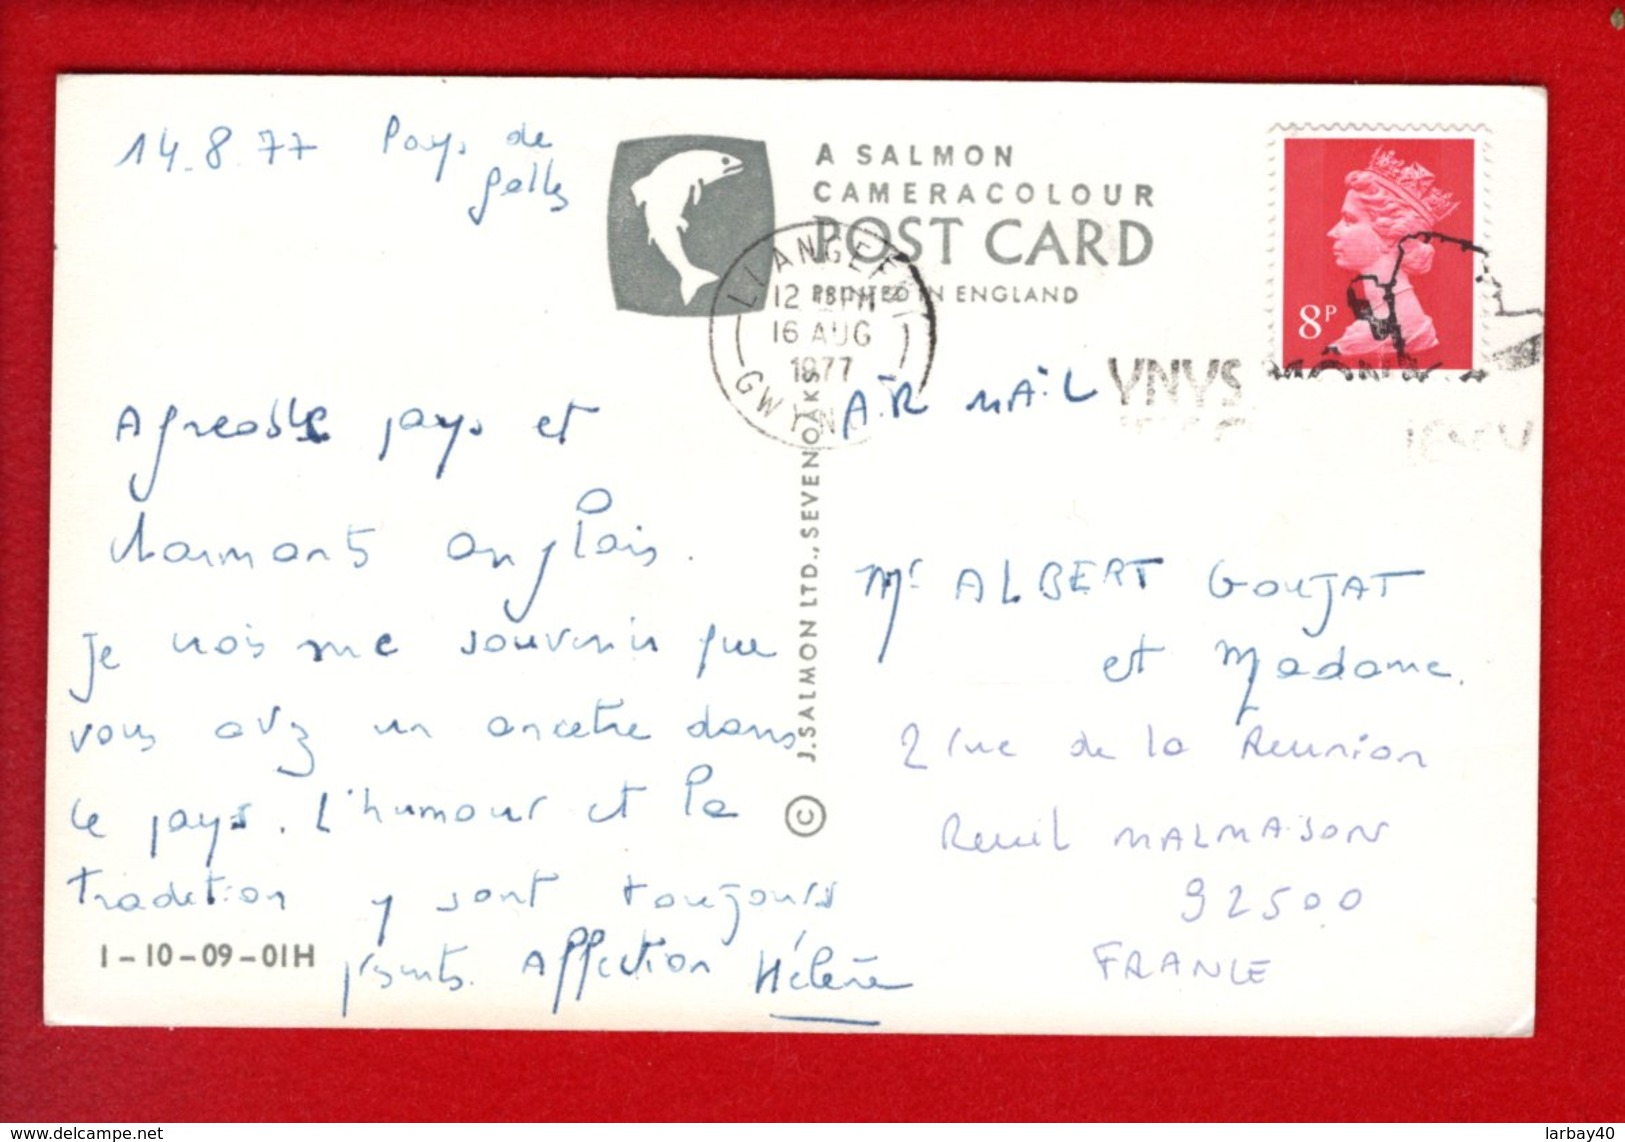 14.8.77 Pays de
Galles
A SALMON
CAMERACOLOUR
POST CARD
PRINTED IN ENGLAND
LLANGEFNI
12 PM
16 AUG
1977
GWYN
8P
YNYS MÔN
AIR MAIL
Agreable pays et
charmants anglais.
Je crois me souvenir que
vous avez un ancetre dans
le pays. L'humour et la
tradition y sont toujours
présents. Affection Hélène
1-10-09-01H
© J. SALMON LTD., SEVENOAKS
Mr ALBERT GOUJAT
et Madame.
2 rue de la Reunion
Reuil MALMAISON
92500
FRANCE
delcampe.net
larbay40